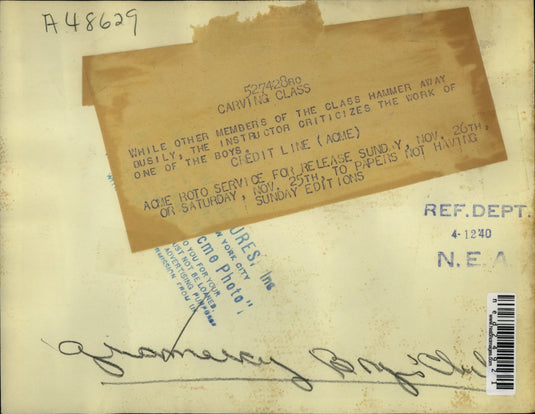 A48629
527428RO
CARVING CLASS
WHILE OTHER MEMBERS OF THE CLASS HAMMER AWAY
BUSILY, THE INSTRUCTOR CRITICIZES THE WORK OF
ONE OF THE BOYS.
CREDIT LINE (ACME)
ACME ROTO SERVICE FOR RELEASE SUNDAY, NOV. 26TH,
OR SATURDAY, NOV. 25TH, TO PAPERS NOT HAVING
SUNDAY EDITIONS
URES, Inc
W YORK CITY
cme Photo";
O YOU FOR YOUR
UST NOT BE LOANED,
ADVERTISING PURPOSES
RMISSION FROM U
REF. DEPT.
4-12 40
N. E. A
Gramercy Boys Club